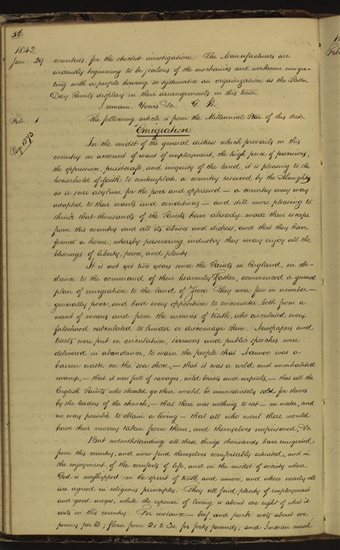 36
1842
Jan 29 countries, for the strictest investigation. The Manufacturers are
evidently beginning to be jealous of the mechanics and workmen emigra-
ting with a people having so systematic an organization as the Latter
Day Saints displays in their arrangements in this town.
I remain Yours &c. G. W.
Feb. 1 The following article is from the Millennial Star of this date
Emigration
In the midst of the general distress which prevails in this
country on account of want of employment, the high price of provisions,
the oppression, priestcraft, and iniquity of the land, it is pleasing to the
household of faith to contemplate a country reserved by the Almighty
as a sure asylum for the poor and oppressed — a country every way
adapted to their wants and conditions — and still more pleasing to
think that thousands of the Saints have already made their escape
from this country and all its abuses and distress, and that they have
found a home, where by persevering industry they may enjoy all the
blessings of liberty, peace, and plenty.
It is not yet two years since the Saints in England, in obe-
dience to the commandment of their heavenly Father, commenced a general
plan of emigration to the land of Zion. They were few in number —
generally poor, and had every opposition to encounter, both from a
want of means and from the enemies of truth, who circulated every
falsehood calculated to hinder or discourage them. Newspapers and
tracts were put in circulation, sermons and public speeches were
delivered in abundance to warn the people that Nauvoo was a
barren waste on the sea shore, — that it was a wild and uninhabited
swamp, — that it was full of savages, wild beasts and serpents, — that all the
English Saints who should go there would be immediately sold for slaves
by the leaders of the church, — that there was nothing to eat — no water, and
no way possible to obtain a living — that all who went there would
have their money taken from them, and themselves imprisoned, &c.
But notwithstanding all these things thousands have emigrated
from this country, and now find themselves comfortably situated, and in
the enjoyment of the comforts of life, and in the midst of society where
God is worshipped in the spirit of truth and union, and where nearly all
are agreed in religious principles. They all find plenty of employment
and good wages, while the expense of living is about one eighth of what it
costs in this country. For instance — beef and pork costs about one
penny per lb; flour from 2s to 3s. for forty pounds; and Indian meal